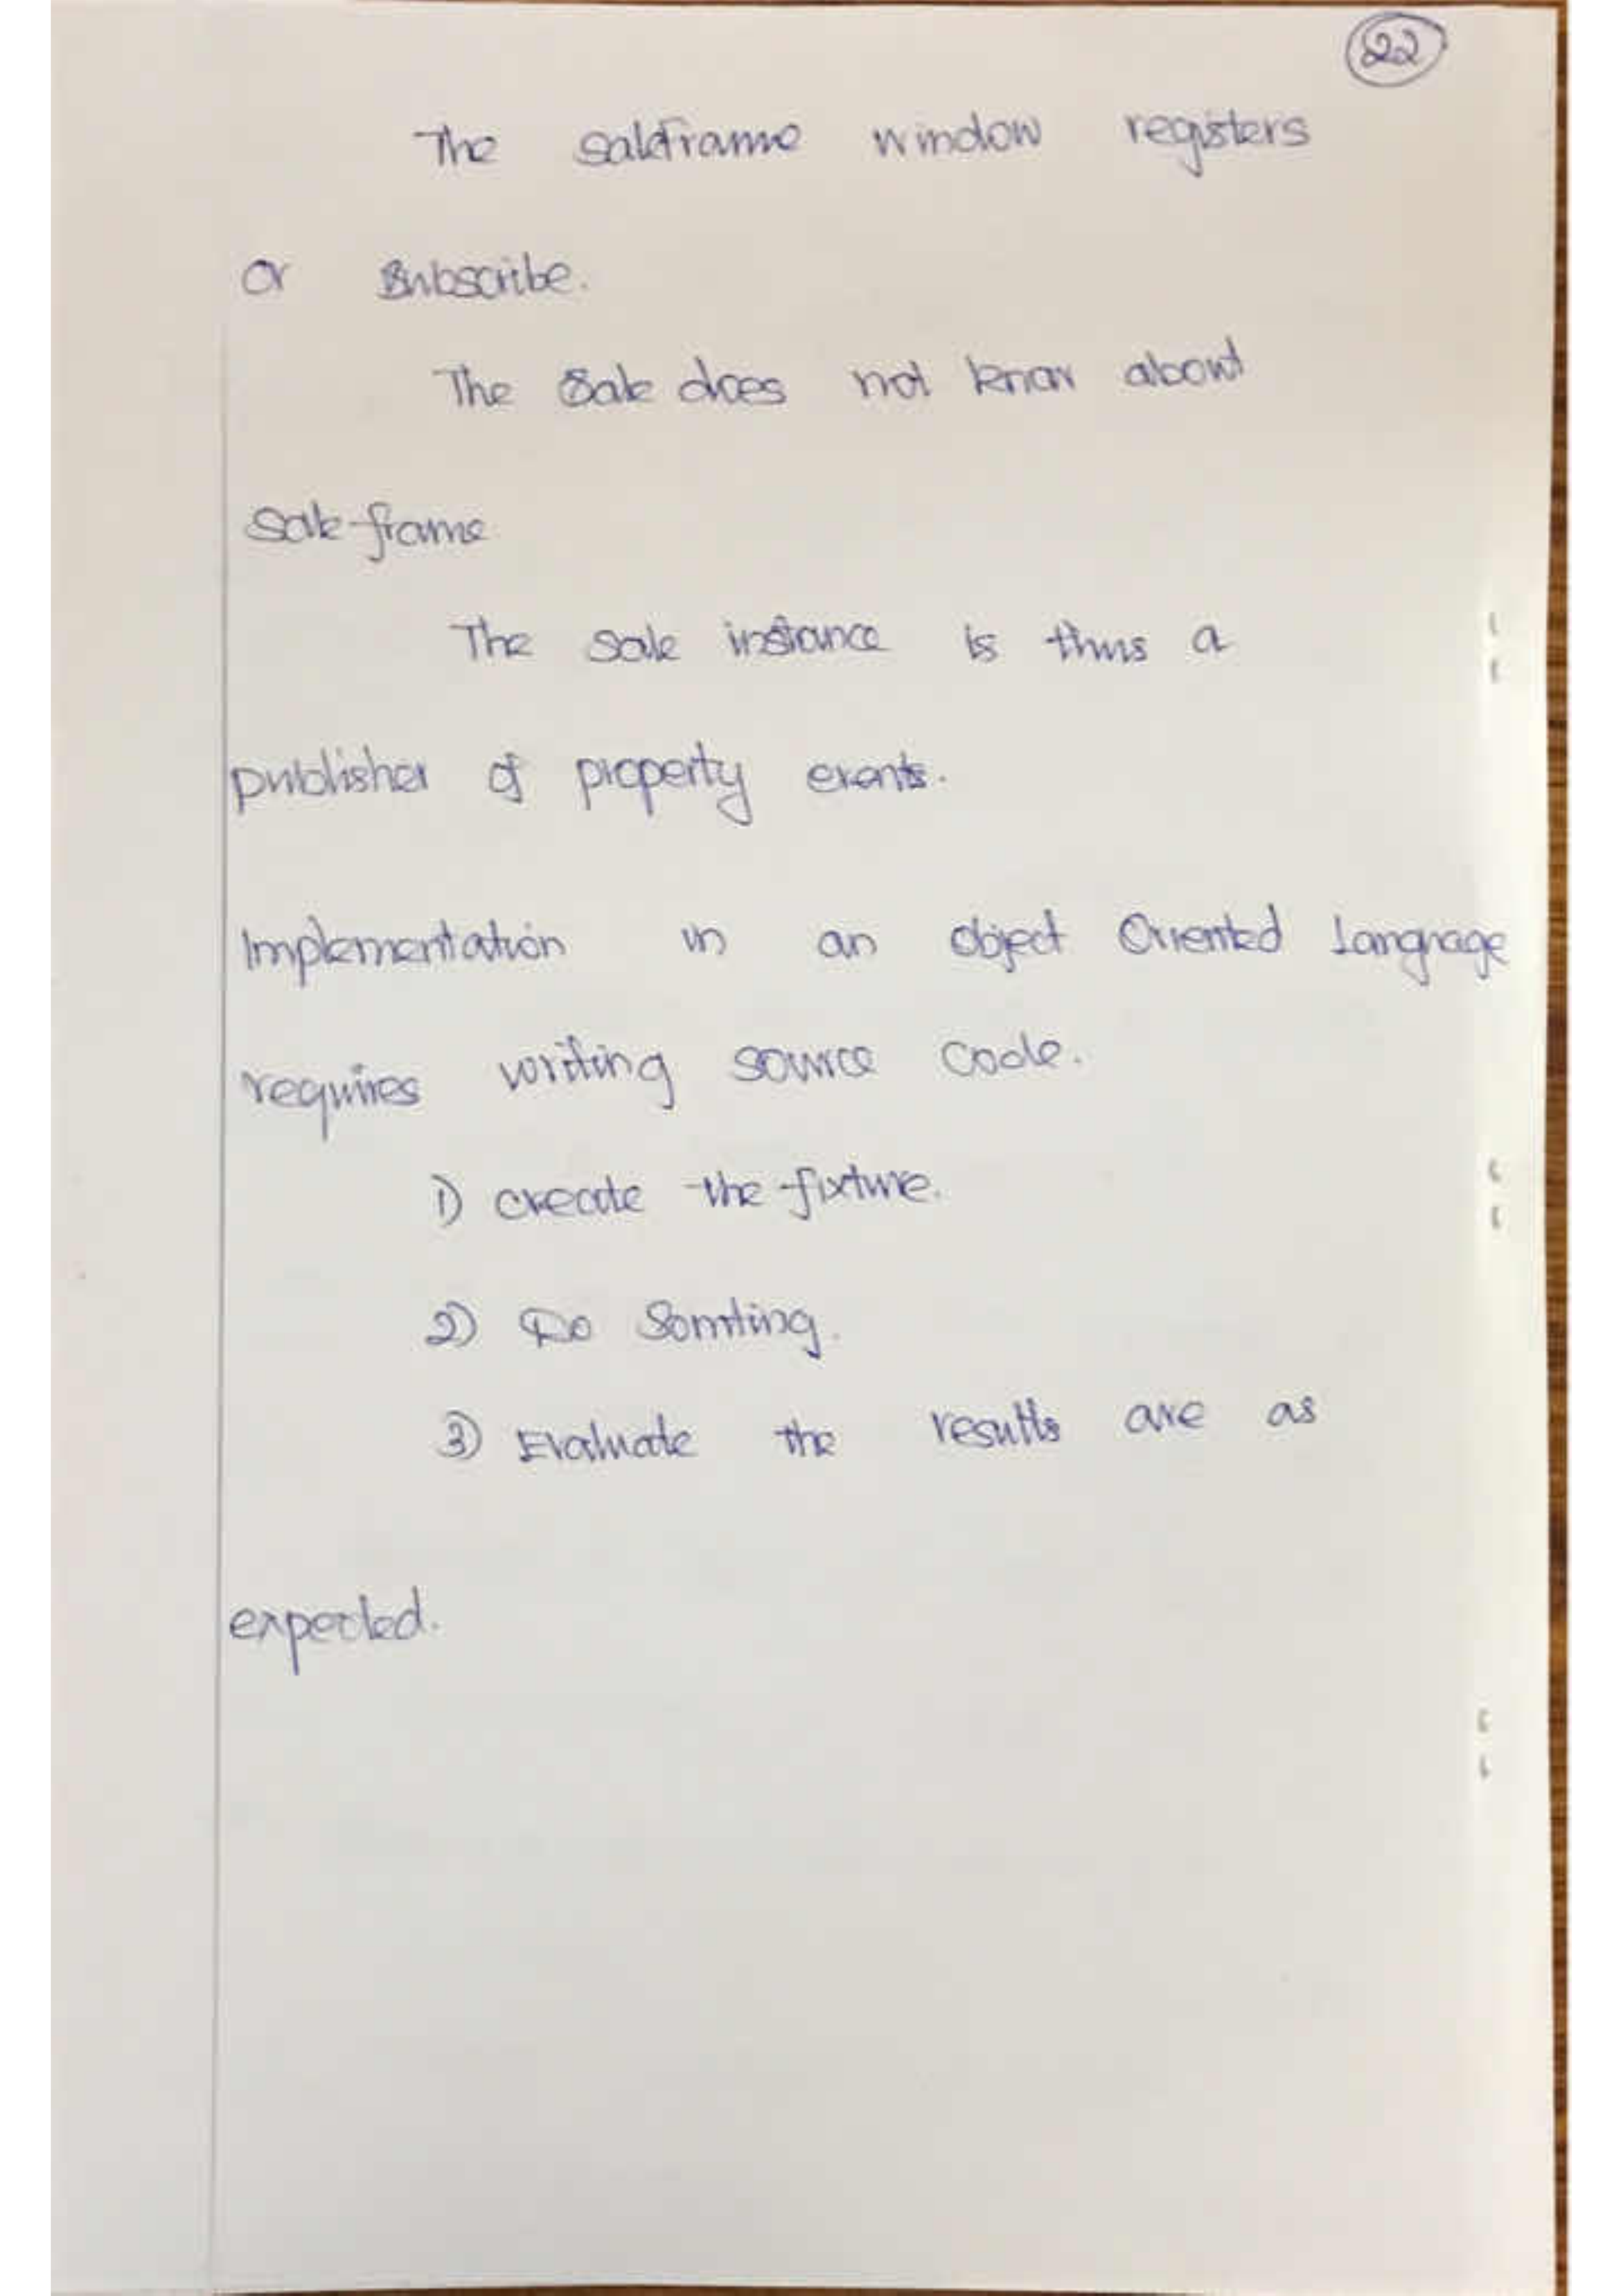 22
The saleframe window registers
or subscribe.
The Sale does not know about
Sale frame
The sale instance is thus a
publisher of property events.
Implementation in an object Oriented Language
requires writing source code.
1) create the fixture.
2) Do Somting.
3) Evaluate the results are as
expected.